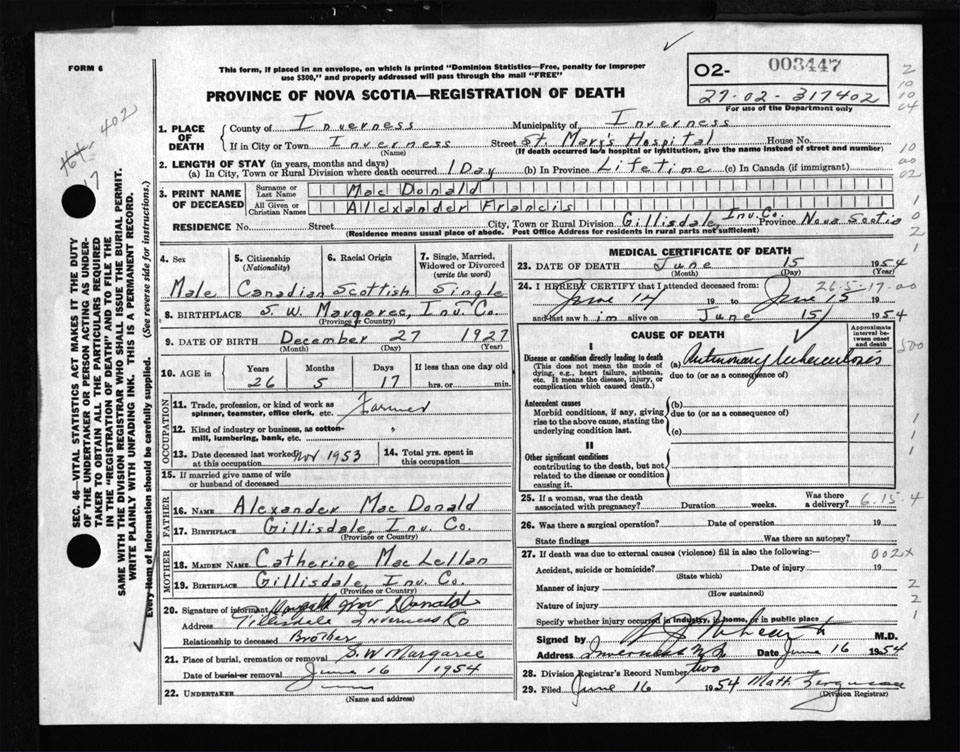 FORM 6
This form, if placed in an envelope, on which is printed "Dominion Statistics—Free, penalty for improper
use $300," and properly addressed will pass through the mail "FREE"
PROVINCE OF NOVA SCOTIA—REGISTRATION OF DEATH
O2- 003447
27-02-317402
For use of the Department only
402
17
2
10
10
64
10
00
02
1
0
2
1
500
1
1
1
2
2
1
SEC. 46—VITAL STATISTICS ACT MAKES IT THE DUTY
OF THE UNDERTAKER OR PERSON ACTING AS UNDER-
TAKER TO OBTAIN ALL THE PARTICULARS REQUIRED
IN THE "REGISTRATION OF DEATH" AND TO FILE THE
SAME WITH THE DIVISION REGISTRAR WHO SHALL ISSUE THE BURIAL PERMIT.
WRITE PLAINLY WITH UNFADING INK. THIS IS A PERMANENT RECORD.
Every item of information should be carefully supplied. (See reverse side for instructions.)
1. PLACE OF DEATH County of Inverness Municipality of Inverness
If in City or Town Inverness (Name) Street St. Mary's Hospital House No.
(If death occurred in a hospital or institution, give the name instead of street and number)
2. LENGTH OF STAY (in years, months and days)
(a) In City, Town or Rural Division where death occurred 1 Day (b) In Province Lifetime (c) In Canada (if immigrant)
3. PRINT NAME OF DECEASED Surname or Last Name Mac Donald
All Given or Christian Names Alexander Francis
RESIDENCE No. Street City, Town or Rural Division Gillisdale, Inv. Co. Province Nova Scotia
(Residence means usual place of abode. Post Office Address for residents in rural parts not sufficient)
4. Sex 5. Citizenship (Nationality) 6. Racial Origin 7. Single, Married, Widowed or Divorced (write the word)
Male Canadian Scottish Single
8. BIRTHPLACE S. W. Margaree, Inv. Co.
(Province or Country)
9. DATE OF BIRTH December 27 1927
(Month) (Day) (Year)
10. AGE in Years Months Days If less than one day old
26 5 17 hrs. or min.
OCCUPATION
11. Trade, profession, or kind of work as spinner, teamster, office clerk, etc. Farmer
12. Kind of industry or business, as cotton-mill, lumbering, bank, etc. "
13. Date deceased last worked at this occupation Nov 1953 14. Total yrs. spent in this occupation
15. If married give name of wife or husband of deceased
FATHER
16. Name Alexander Mac Donald
17. Birthplace Gillisdale, Inv. Co.
(Province or Country)
MOTHER
18. MAIDEN NAME Catherine Mac Lellan
19. BIRTHPLACE Gillisdale, Inv. Co.
(Province or Country)
20. Signature of informant Mac Donald
Address Gillisdale Inverness Co
Relationship to deceased Brother
21. Place of burial, cremation or removal S. W Margaree
Date of burial or removal June 16 1954
22. UNDERTAKER
(Name and address)
MEDICAL CERTIFICATE OF DEATH
23. DATE OF DEATH June 15 1954
(Month) (Day) (Year)
24. I HEREBY CERTIFY that I attended deceased from: 26-5-17-00
June 14 19 to June 15 19
and last saw him alive on June 15/ 1954
CAUSE OF DEATH
Approximate interval between onset and death
I
Disease or condition directly leading to death
(This does not mean the mode of dying, e.g., heart failure, asthenia, etc. It means the disease, injury, or complication which caused death.)
(a) Pulmonary tuberculosis
due to (or as a consequence of)
Antecedent causes
Morbid conditions, if any, giving rise to the above cause, stating the underlying condition last.
(b)
due to (or as a consequence of)
(c)
II
Other significant conditions
contributing to the death, but not related to the disease or condition causing it.
25. If a woman, was the death associated with pregnancy? Duration weeks. Was there a delivery? 6-15-4
26. Was there a surgical operation? Date of operation 19
State findings Was there an autopsy?
27. If death was due to external causes (violence) fill in also the following:— 002x
Accident, suicide or homicide? (State which) Date of injury 19
Manner of injury (How sustained)
Nature of injury
Specify whether injury occurred in industry, in home, or in public place
Signed by M.D.
Address Inverness N.S. Date June 16 1954
28. Division Registrar's Record Number two
29. Filed June 16 1954 Matt Ferguson
(Division Registrar)